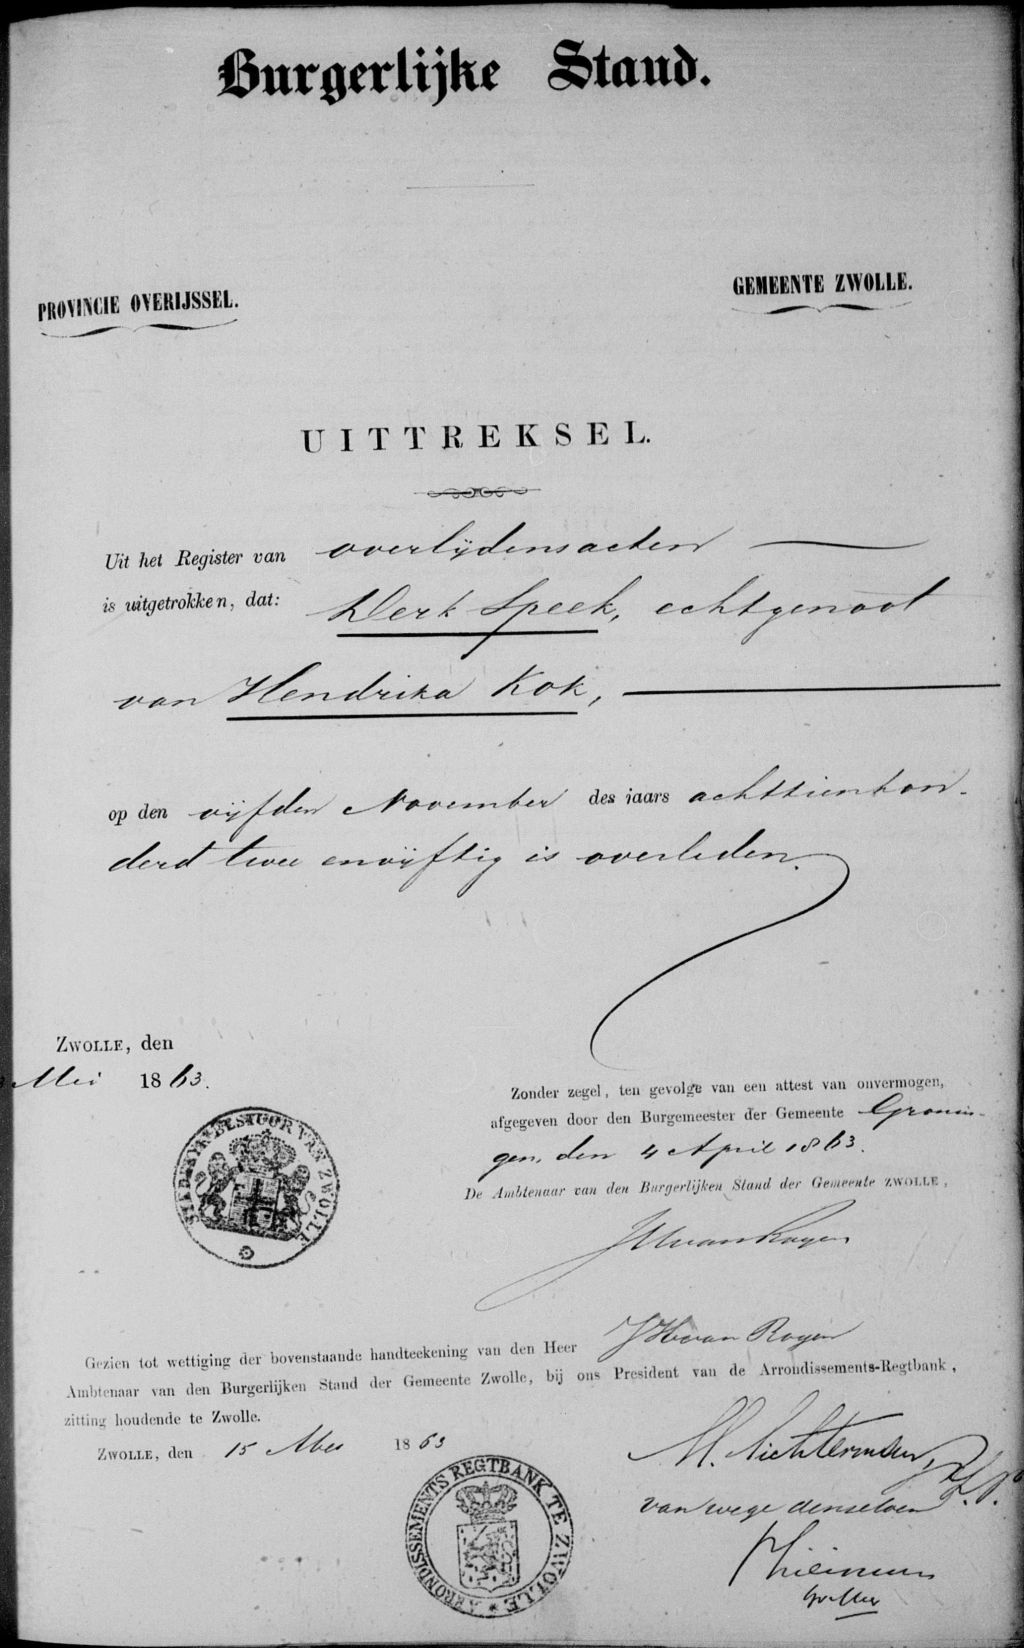 Burgerlijke Stand.
PROVINCIE OVERIJSSEL.
GEMEENTE ZWOLLE.
UITTREKSEL.
Uit het Register van overlijdensacten
is uitgetrokken, dat: Derk Speek, echtgenoot
van Hendrika Kok,
op den vijfden November des jaars achttienhon-
derd twee envijftig is overleden.
ZWOLLE, den
Mei 1863.
STADSBESTUUR VAN ZWOLLE
Zonder zegel, ten gevolge van een attest van onvermogen,
afgegeven door den Burgemeester der Gemeente Gronin-
gen, den 4 April 1863.
De Ambtenaar van den Burgerlijken Stand der Gemeente ZWOLLE,
Gezien tot wettiging der bovenstaande handteekening van den Heer
Ambtenaar van den Burgerlijken Stand der Gemeente Zwolle, bij ons President van de Arrondissements-Regtbank,
zitting houdende te Zwolle.
ZWOLLE, den 15 Mei 1863
ARRONDISSEMENTS REGTBANK TE ZWOLLE
van wege denzelven